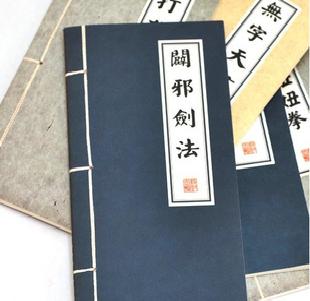 打
無字天
闢邪劍法
拳